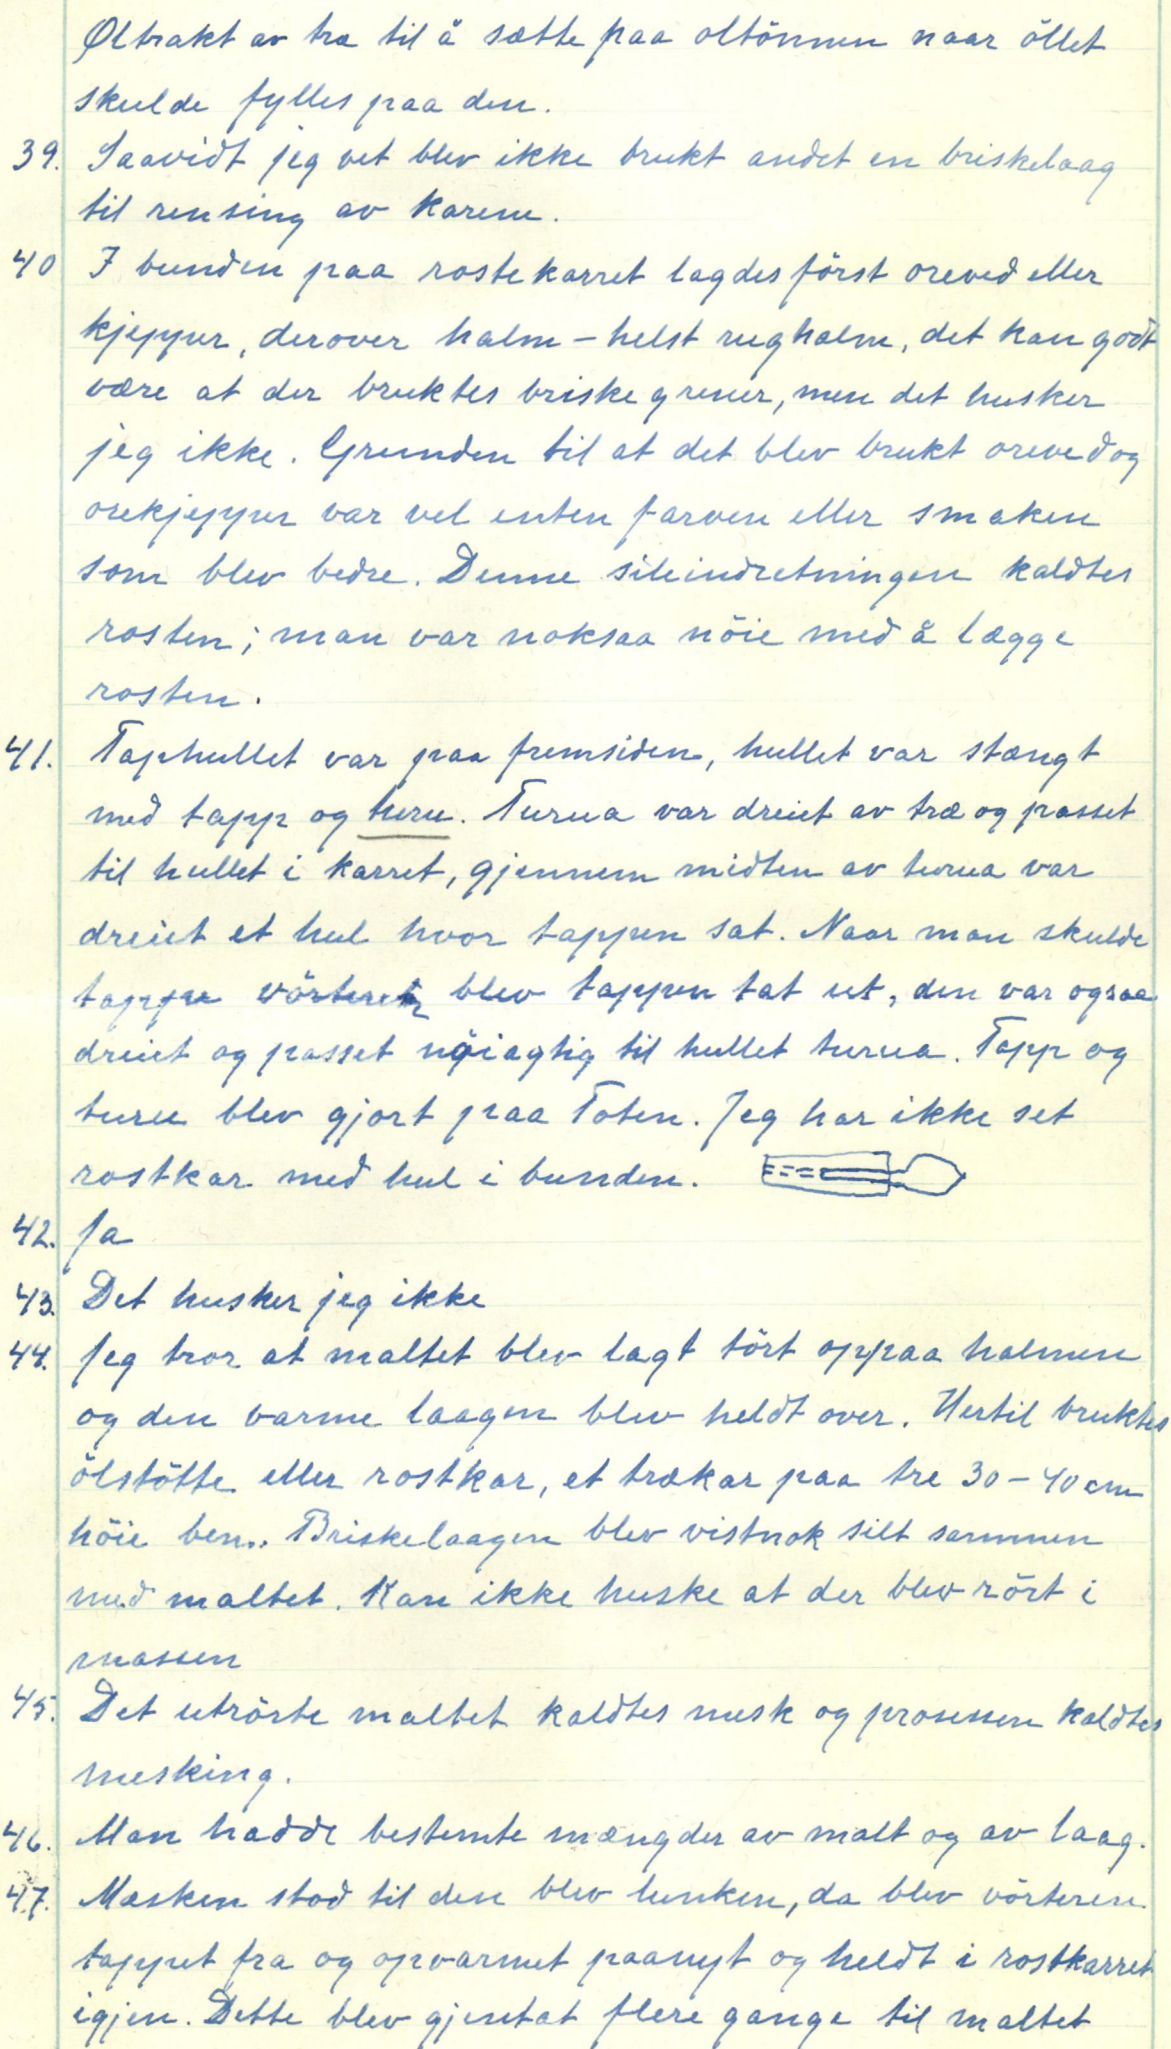 Øltrakt av træ til å sætte paa oltönnen naar öllet
skulde fylles paa den.
39. Saavidt jeg vet blev ikke brukt andet en briskelaag
til rensing av karene.
40 I bunden paa rostekarret lagdes först oreved eller
kjepper, derover halm – helst rughalm, det kan godt
være at der bruktes briskegrener, men det husker
jeg ikke. Grunden til at det blev brukt oreved og
orekjepper var vel enten farven eller smaken
som blev bedre. Denne sileindretningen kaldtes
rosten; man var noksaa nöie med å lægge
rosten.
41. Taphullet var paa fremsiden, hullet var stængt
med tapp og turu. Turua var dreiet av træ og passet
til hullet i karret, gjennem midten av turua var
dreiet et hul hvor tappen sat. Naar man skulde
tappe vörteren blev tappen tat ut, den var ogsaa
dreiet og passet nöiagtig til hullet turua. Tapp og
turu blev gjort paa Toten. Jeg har ikke set
rostkar med hul i bunden.
42. Ja
43. Det husker jeg ikke
44. Jeg tror at maltet blev lagt tört oppaa halmen
og den varme laagen blev heldt over. Hertil bruktes
ölstötte eller rostkar, et trækar paa tre 30–40 cm
höie ben. Briskelaagen blev vistnok silt sammen
med maltet. Kan ikke huske at der blev rört i
massen
45. Det utrörte maltet kaldtes mesk og prosessen kaldtes
mesking.
46. Man hadde bestemte mængder av malt og av laag.
47. Mæsken stod til den blev lunken, da blev vörteren
tappet fra og opvarmet paanyt og heldt i rostkarret
igjen. Dette blev gjentat flere gange til maltet